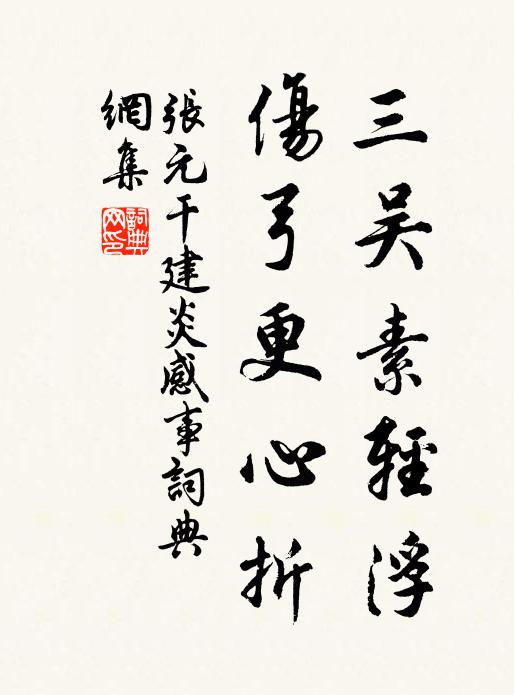 三吴素輕浮
傷弓更心折
張元干建炎感事詞典
網集
詞典
网印